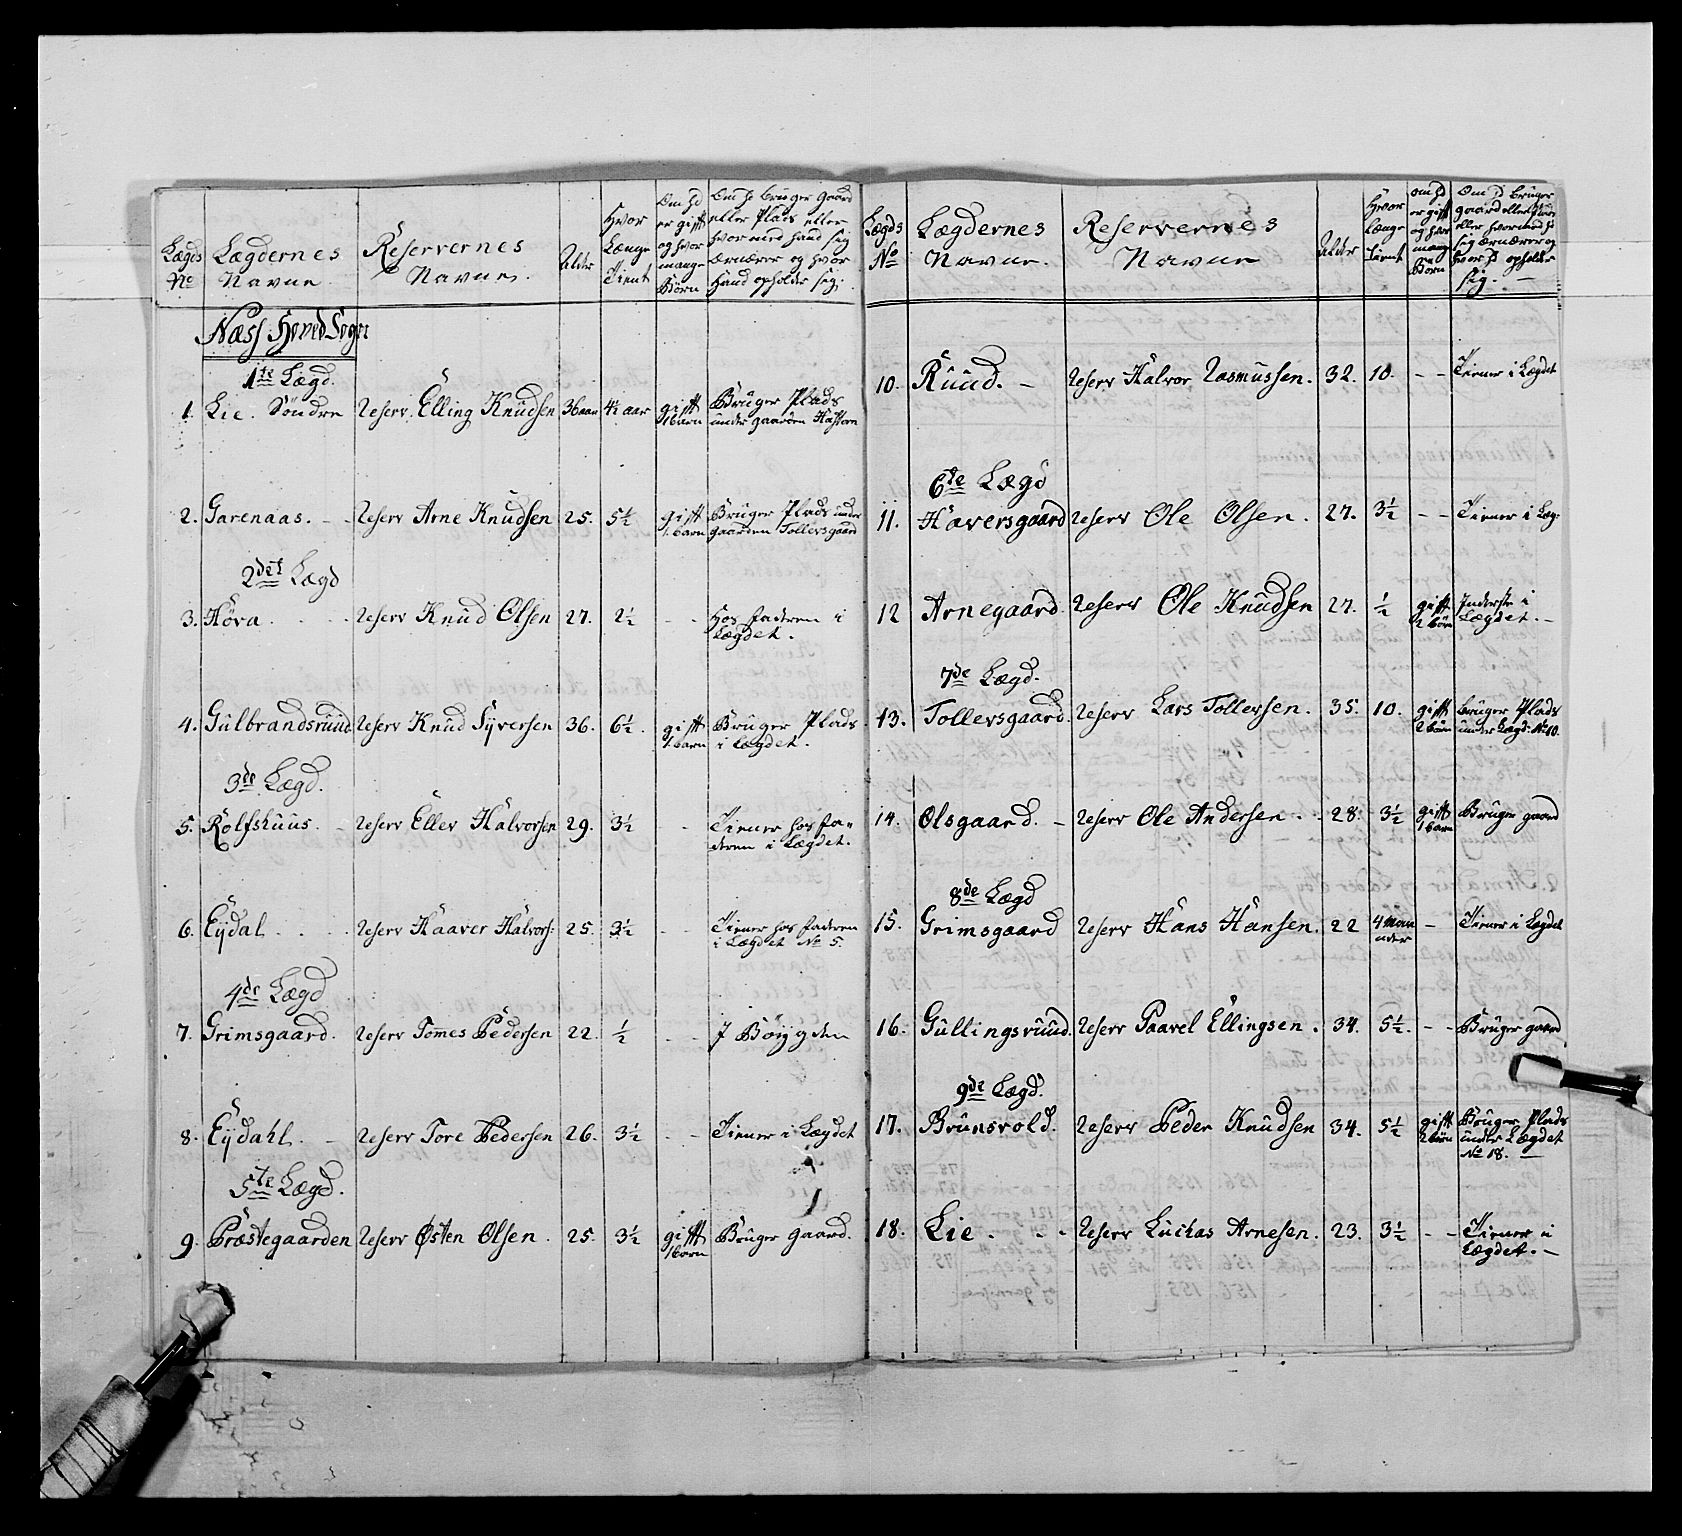 Lægds No | Lægdernes Navne | Reservernes Navne | Alder | Hvor Længe Tient | Om hd er gift og hvor mange Børn | Om hd bruger Gaard eller Plads eller hvormed hand sig Ærnærer og hvor Hand opholder sig.
Næss Hoved Sogn
1te Lægd.
1. Lie. Söndre | Reserv. Elling Knudsen | 36 aar | 4½ aar | gift 1 barn | Bruger Plads under gaarden
2. Garenaas. | Reserv Arne Knudsen | 25. | 5½ | gift 1. barn | Bruger Plads under gaarden Tollersgaard
2det Lægd
3. Höva | Reserv Knud Olsen | 27. | 2½ | - - | Hos faderen i Lægdet.
4. Gulbrandsruud | Reserv Knud Syversen | 36. | 6½. | gift 1. barn | Bruger Plads i Lægdet.
3de Lægd.
5. Rolfshuus. | Reserv Eller Halvorsen | 29. | 3½ | - | Tiener hos faderen i Lægdet.
6. Eÿdal. | Reserv Haaver Halvors: | 25. | 3½ | - - | Tiener hos faderen i Lægdet No 5.
4de Lægd
7. Grimsgaard. | Reserv Tomes Pedersen | 22. | ½ | - - | J Böÿgden
8. Eÿdahl. | Reserv Tore Pedersen | 26. | 3½ | - - | Tiener i Lægdet
5te Lægd.
9. Præstegaarden | Reserv Østen Olsen. | 25. | 3½ | gift 1 barn | Bruger Gaard.
Lægds No | Lægdernes Navne. | Reservernes Navne | Alder | Hvor Længe Tient | om hd er gift og hvor mange Børn | Om hd bruger gaard eller Plads eller hvormed hd sig Ærnærer og hvor hd opholder sig.
10. Ruud. - | Reserv Halvor Rasmussen. | 32. | 10. | - - | Tiener i Lægdet
6te Lægd
11. Haversgaard | Reserv Ole Olsen. | 27. | 3½ | - - | Tiener i Læg:
12 Arnegaard. | Reserv Ole Knudsen | 27. | ½ | gift 2 börn | Inderste i Lægdet.
7de Lægd.
13. Tollersgaard. | Reserv Lars Tollersen. | 35. | 10. | gift 2 börn | bruger Plads under Lægd: No 10.
14. Olsgaard. - | Reserv Ole Andersen | 28. | 3½ | gift 1 barn | Bruger gaard
8de Lægd
15. Grimsgaard | Reserv Hans Hansen. | 22 | 4 Maaneder | - | Tiener i Lægdet
16. Gullingsruud. | Reserv Paavel Ellingsen. | 34. | 5½. | - - | Bruger gaard
9de Lægd.
17. Brunsvold. | Reserv Peder Knudsen | 34. | 5½ | gift 2 börn | Bruger Plads under Lægdet No 18.
18. Lie. | Reserv Luckas Arnesen. | 23. | 3½ | - - | Tiener i Lægdet.